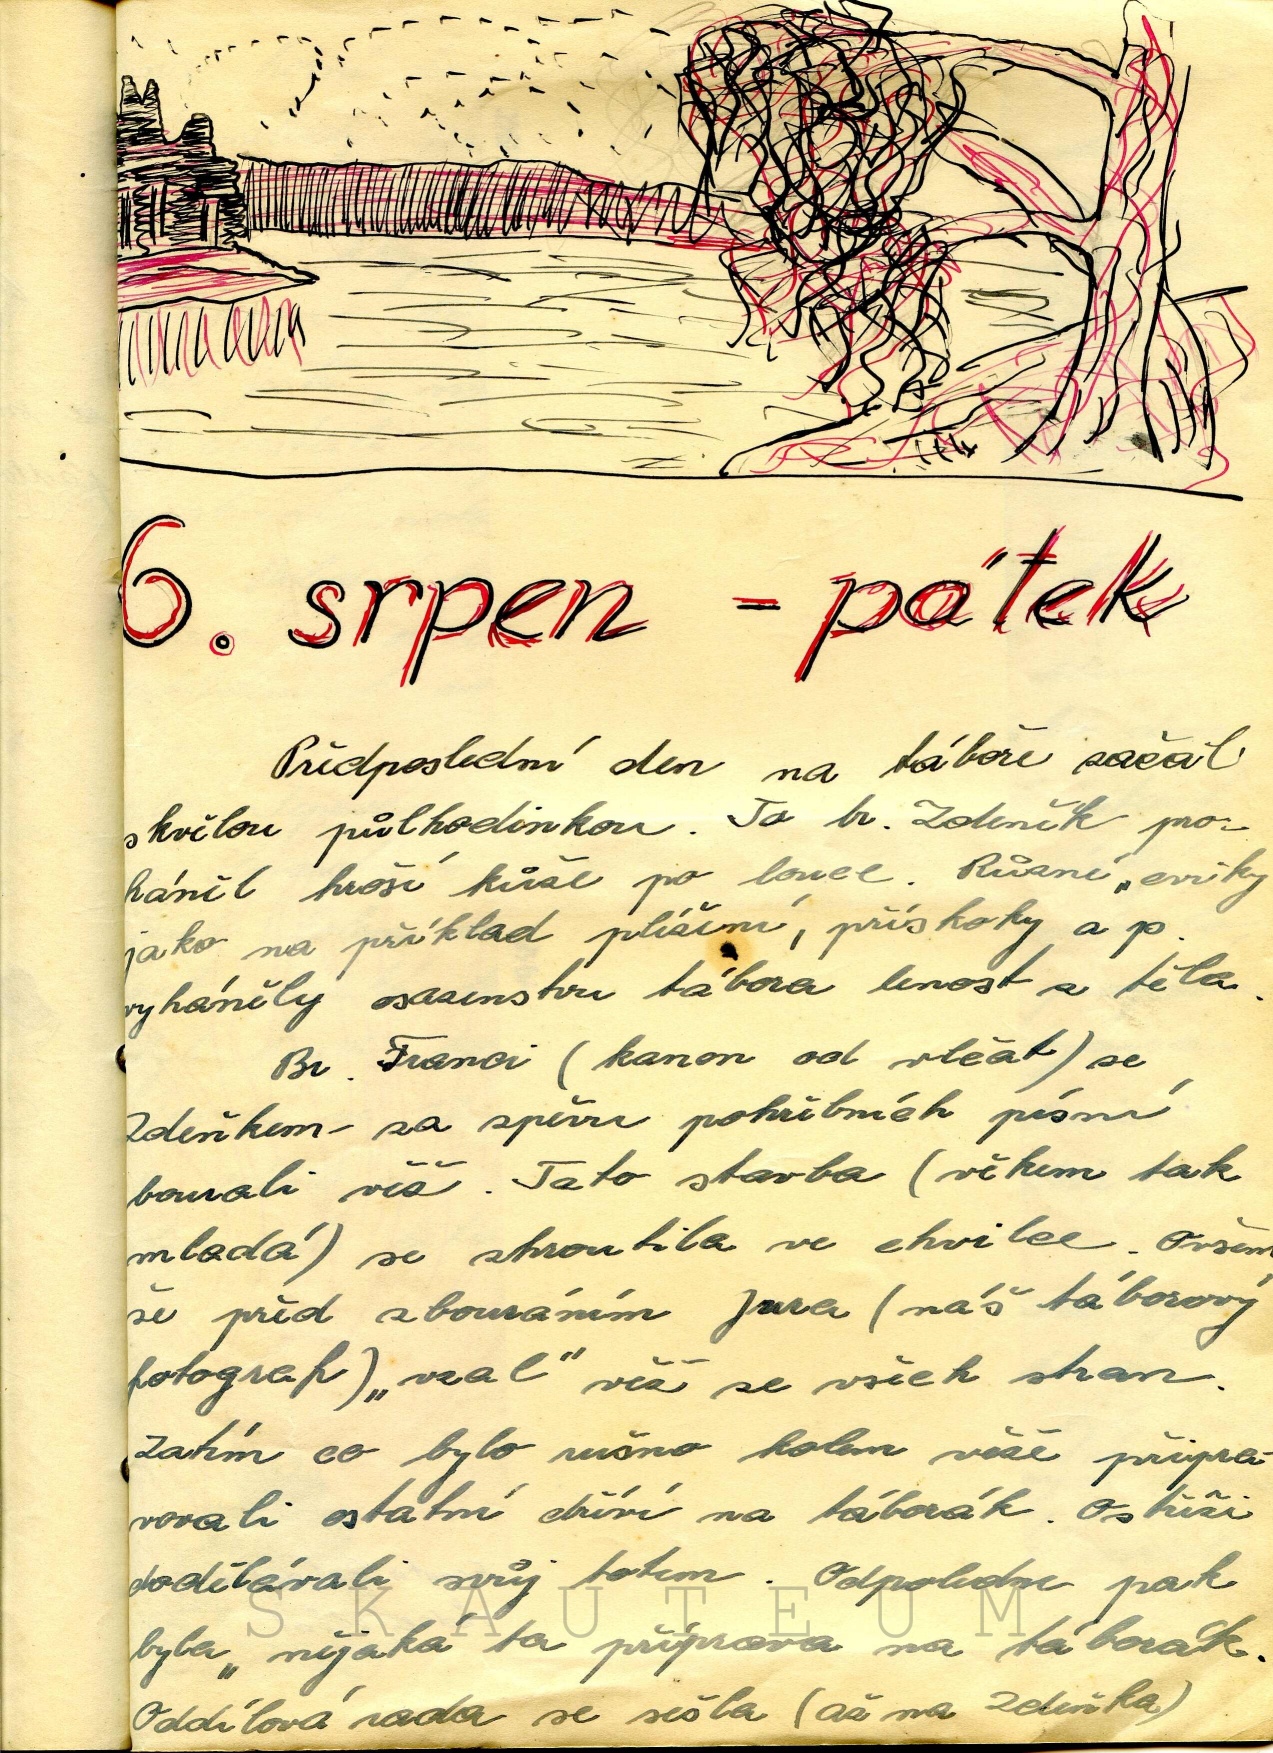 6. srpen - pátek
Předposlední den na táboře začal
skvělou půlhodinkou. To br. Zdeněk pro-
háněl hroší kůže po louce. Různé „cviky
jako na příklad plížení, přískoky a p.
vyháněly osazenstvu tábora lenost z těla.
Br. Franci (kanon od vlčat) se
Zdeňkem - za zpěvu pohřebních písní
bourali věž. Tato stavba (věkem tak
mladá) se zhroutila ve chvilce. Ovšem
že před zbouráním Jura (náš táborový
fotograf) „vzal" věž ze všech stran.
Zatím co bylo rušno kolem věže připra-
vovali ostatní dříví na táborák. Ostříži
dodělávali svůj totem. Odpoledne pak
byla „nějaká ta příprava na táborák.
Oddílová rada se sešla (až na Zdeňka)
SKAUTEUM